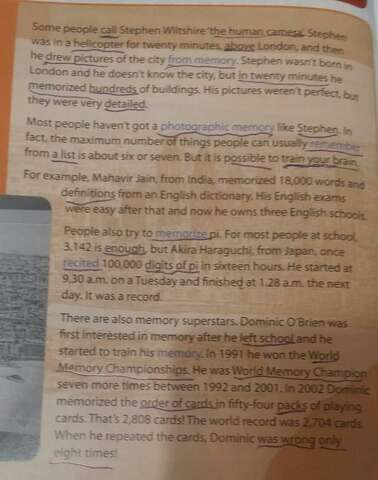 Some people call Stephen Wiltshire 'the human camera'. Stephen
was in a helicopter for twenty minutes, above London, and then
he drew pictures of the city from memory. Stephen wasn't born in
London and he doesn't know the city, but in twenty minutes he
memorized hundreds of buildings. His pictures weren't perfect, but
they were very detailed.
Most people haven't got a photographic memory like Stephen. In
fact, the maximum number of things people can usually remember
from a list is about six or seven. But it is possible to train your brain.
For example, Mahavir Jain, from India, memorized 18,000 words and
definitions from an English dictionary. His English exams
were easy after that and now he owns three English schools.
People also try to memorize pi. For most people at school,
3.142 is enough, but Akira Haraguchi, from Japan, once
recited 100,000 digits of pi in sixteen hours. He started at
9.30 a.m. on a Tuesday and finished at 1.28 a.m. the next
day. It was a record.
There are also memory superstars. Dominic O'Brien was
first interested in memory after he left school and he
started to train his memory. In 1991 he won the World
Memory Championships. He was World Memory Champion
seven more times between 1992 and 2001. In 2002 Dominic
memorized the order of cards in fifty-four packs of playing
cards. That's 2,808 cards! The world record was 2,704 cards.
When he repeated the cards, Dominic was wrong only
eight times!